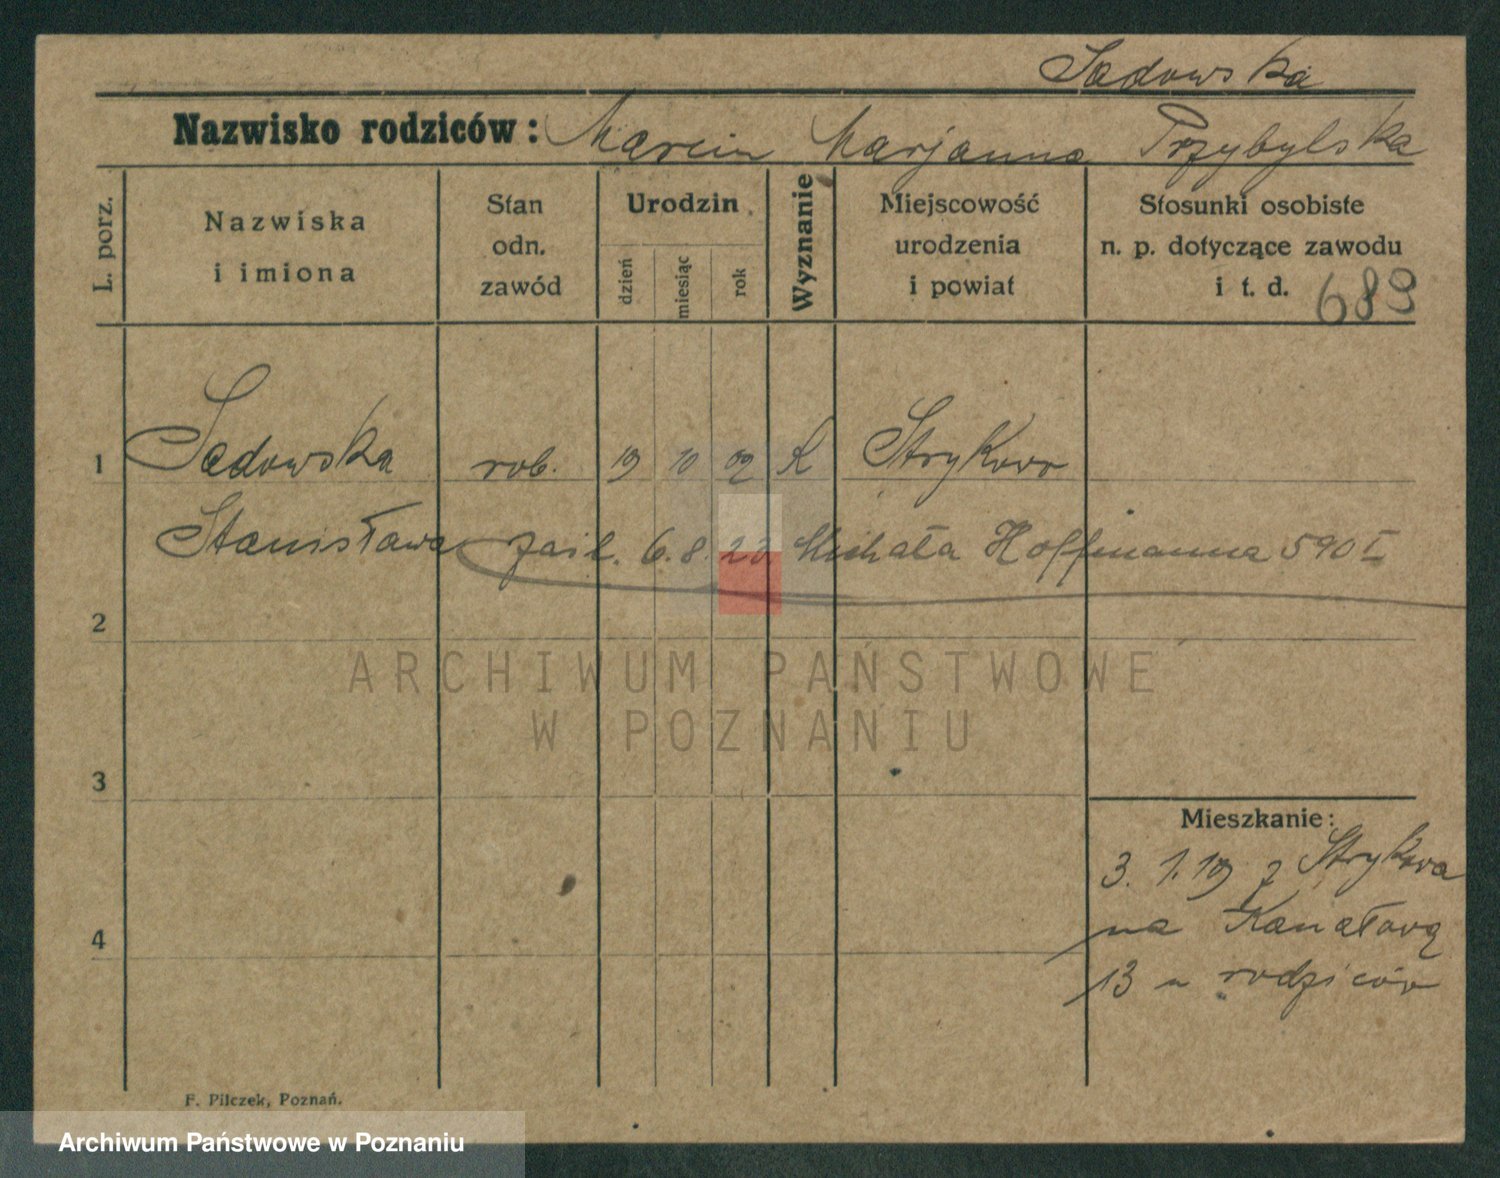 Sadowska
Nazwisko rodziców: Marcin Marjanna Przybylska
L. porz.
Nazwiska
i imiona
Stan
odn.
zawód
Urodzin
dzień
miesiąc
rok
Wyznanie
Miejscowość
urodzenia
i powiat
Stosunki osobiste
n. p. dotyczące zawodu
i t. d.
689
1 Sadowska rob. 19 10 09 K Strykowo
Stanisława zaśl. 6.8.23 Michała Hoffmanna 590 I
2
ARCHIWUM PAŃSTWOWE
W POZNANIU
3
Mieszkanie:
3. 1. 19 z Strykowa
na Kanałową
13 u rodziców
4
F. Pilczek, Poznań.
Archiwum Państwowe w Poznaniu